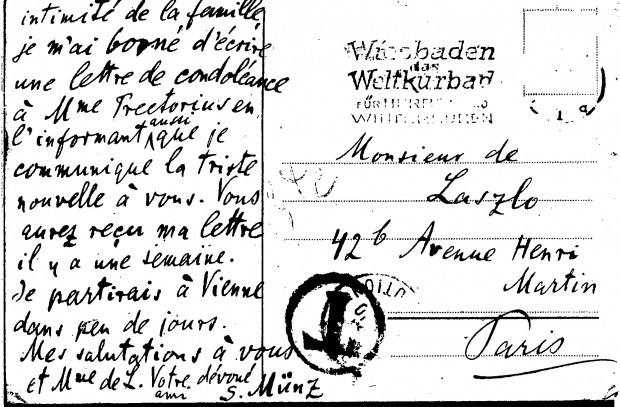 intimité de la famille
je m'ai borné d'écrire
une lettre de condoléance
à Mme Prectorius en
l'informant aussi que je
communique la triste
nouvelle à vous. Vous
aurez reçu ma lettre
il y a une semaine.
Je partirais à Vienne
dans peu de jours.
Mes salutations à vous
et Mme de L. Votre dévoué
ami S. Münz
Wiesbaden
das
Weltkurbad
FÜR
Monsieur de
Laszlo
42 b Avenue Henri
Martin
Paris